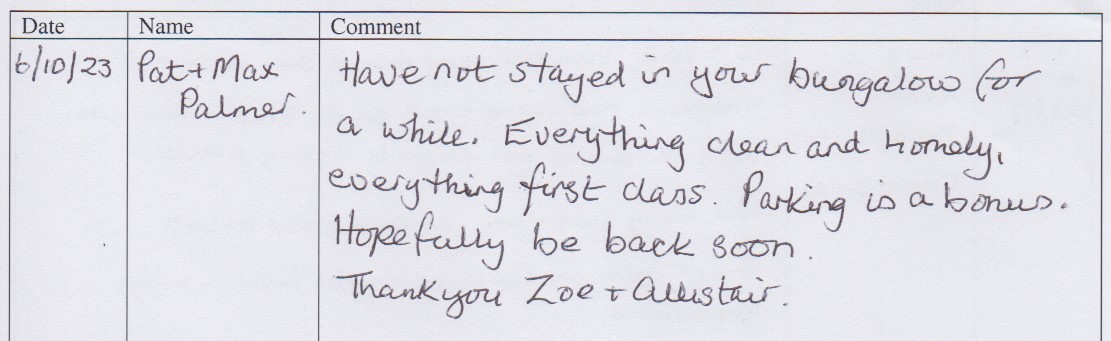 Date Name Comment
6/10/23 Pat + Max Have not stayed in your bungalow for
Palmer. a while. Everything clean and homely,
everything first class. Parking is a bonus.
Hopefully be back soon.
Thankyou Zoe + Allistair.